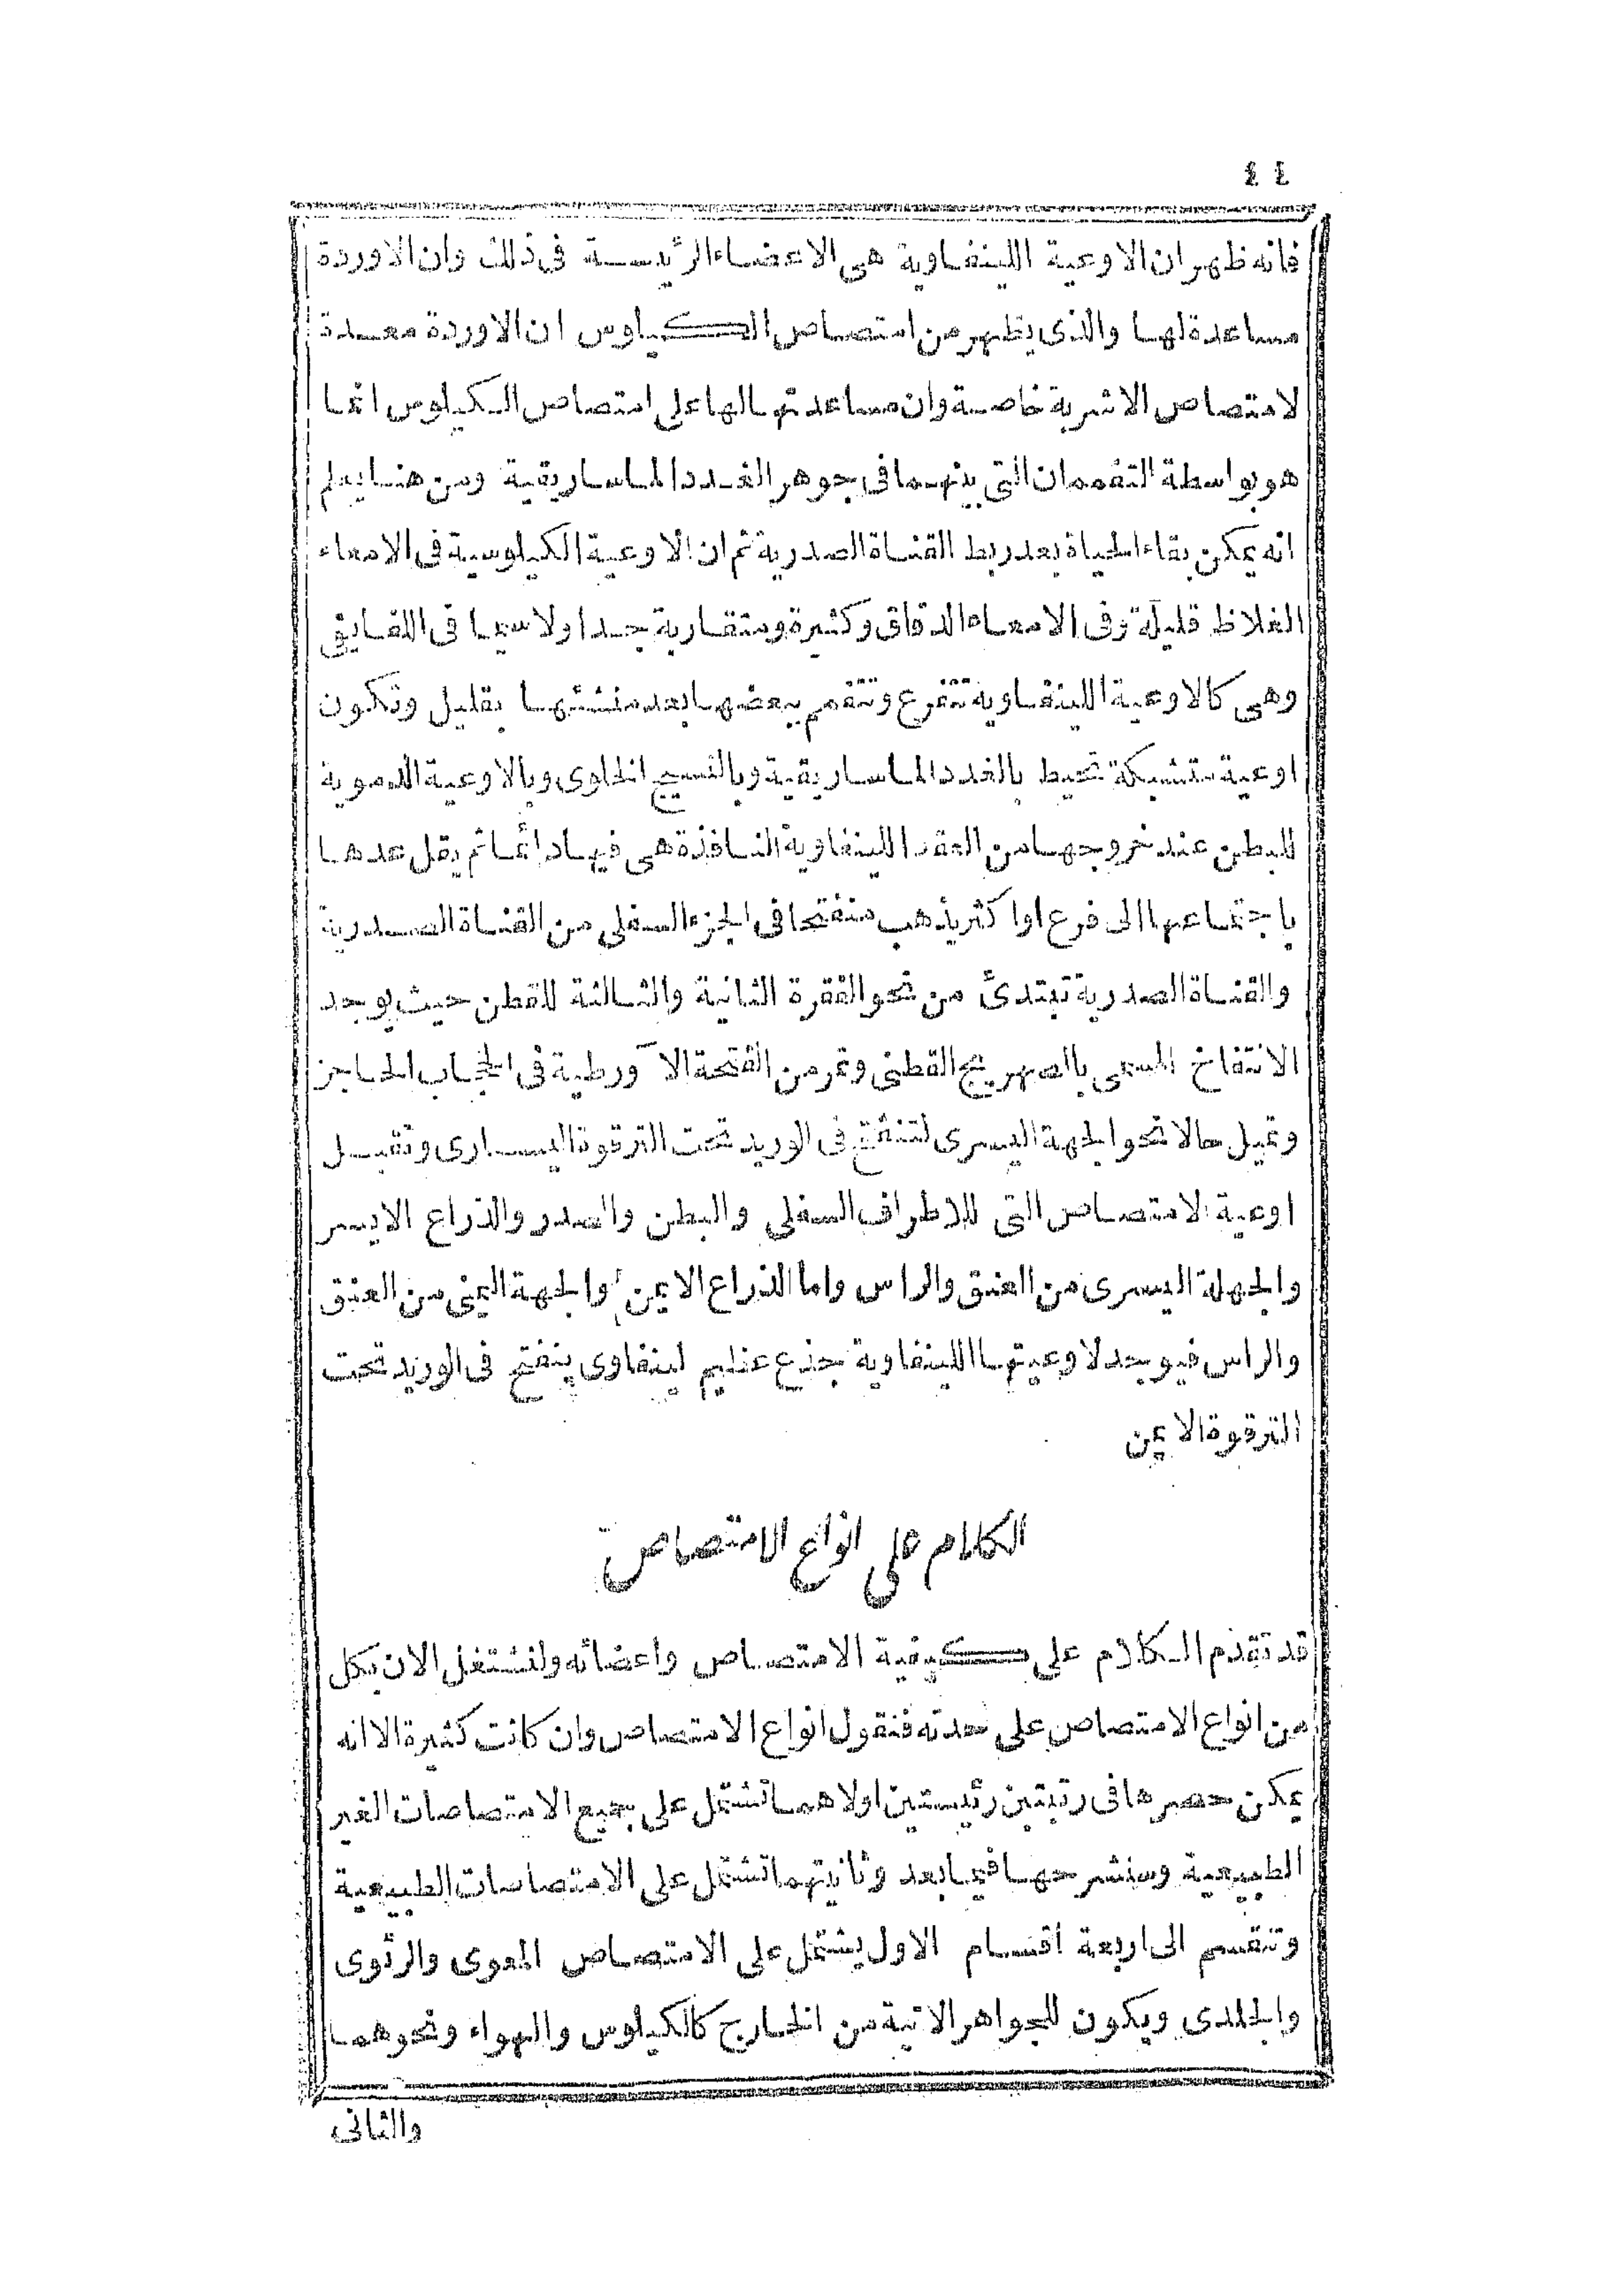 ٤٤
فانه ظهر ان الاوعية اللينفاوية هى الاعضاء الرئيسة فى ذلك وان الاوردة
مساعدة لها والذى يظهر من امتصاص الكيلوس ان الاوردة معدة
لامتصاص الاشربة خاصة وان مساعدتها لها على امتصاص الكيلوس انما
هو بواسطة التفممان التى بينهما فى جوهر الغدد الماساريقية ومن هنا يعلم
انه يمكن بقاء الحياة بعد ربط القناة الصدرية ثم ان الاوعية الكيلوسية فى الامعاء
الغلاظ قليلة وفى الامعاء الدقاق وكثيرة ومتقاربة جدا ولا سيما فى اللفايفى
وهى كالاوعية اللينفاوية تتفرع وتتفمم ببعضها بعد منشئها بقليل وتكون
اوعية متشبكة تحيط بالغدد الماساريقية وبالنسيج الخلوى وبالاوعية الدموية
للبطن عند خروجها من العقد اللينفاوية النافذة هى فيها دائما ثم يقل عدها
باجتماعها الى فرع اوا كثر يذهب منفتحا فى الجزء السفلى من القناة الصدرية
والقناة الصدرية تبتدئ من نحو الفقرة الثانية والثالثة للقطن حيث يوجد
الانتفاخ المسمى بالصهريج القطنى وتمر من الفتحة الآورطية فى الحجاب الحاجز
وتميل حالا نحو الجهة اليسرى لتنفتح فى الوريد تحت الترقوة اليسارى وتقبل
اوعية الامتصاص التى للاطراف السفلى والبطن والصدر والذراع الايسر
والجهة اليسرى من العنق والراس واما الذراع الايمن والجهة اليمنى من العنق
والراس فيوجد لاوعيتها اللينفاوية جذع عظيم لينفاوى ينفتح فى الوريد تحت
الترقوة الايمن
الكلام على انواع الامتصاص
قد تقدم الكلام على كيفية الامتصاص واعضائه ولنشتغل الان بكل
من انواع الامتصاص على حدته فنقول انواع الامتصاص وان كانت كثيرة الا انه
يمكن حصرها فى رتبتين رئيستين اولاهما تشتمل على جميع الامتصاصات الغير
الطبيعية وسنشرحها فيما بعد وثانيتهما تشتمل على الامتصاصات الطبيعية
وتنقسم الى اربعة اقسام الاول يشتمل على الامتصاص المعوى والرئوى
والجلدى ويكون للجواهر الاتية من الخارج كالكيلوس والهواء ونحوهما
والثانى